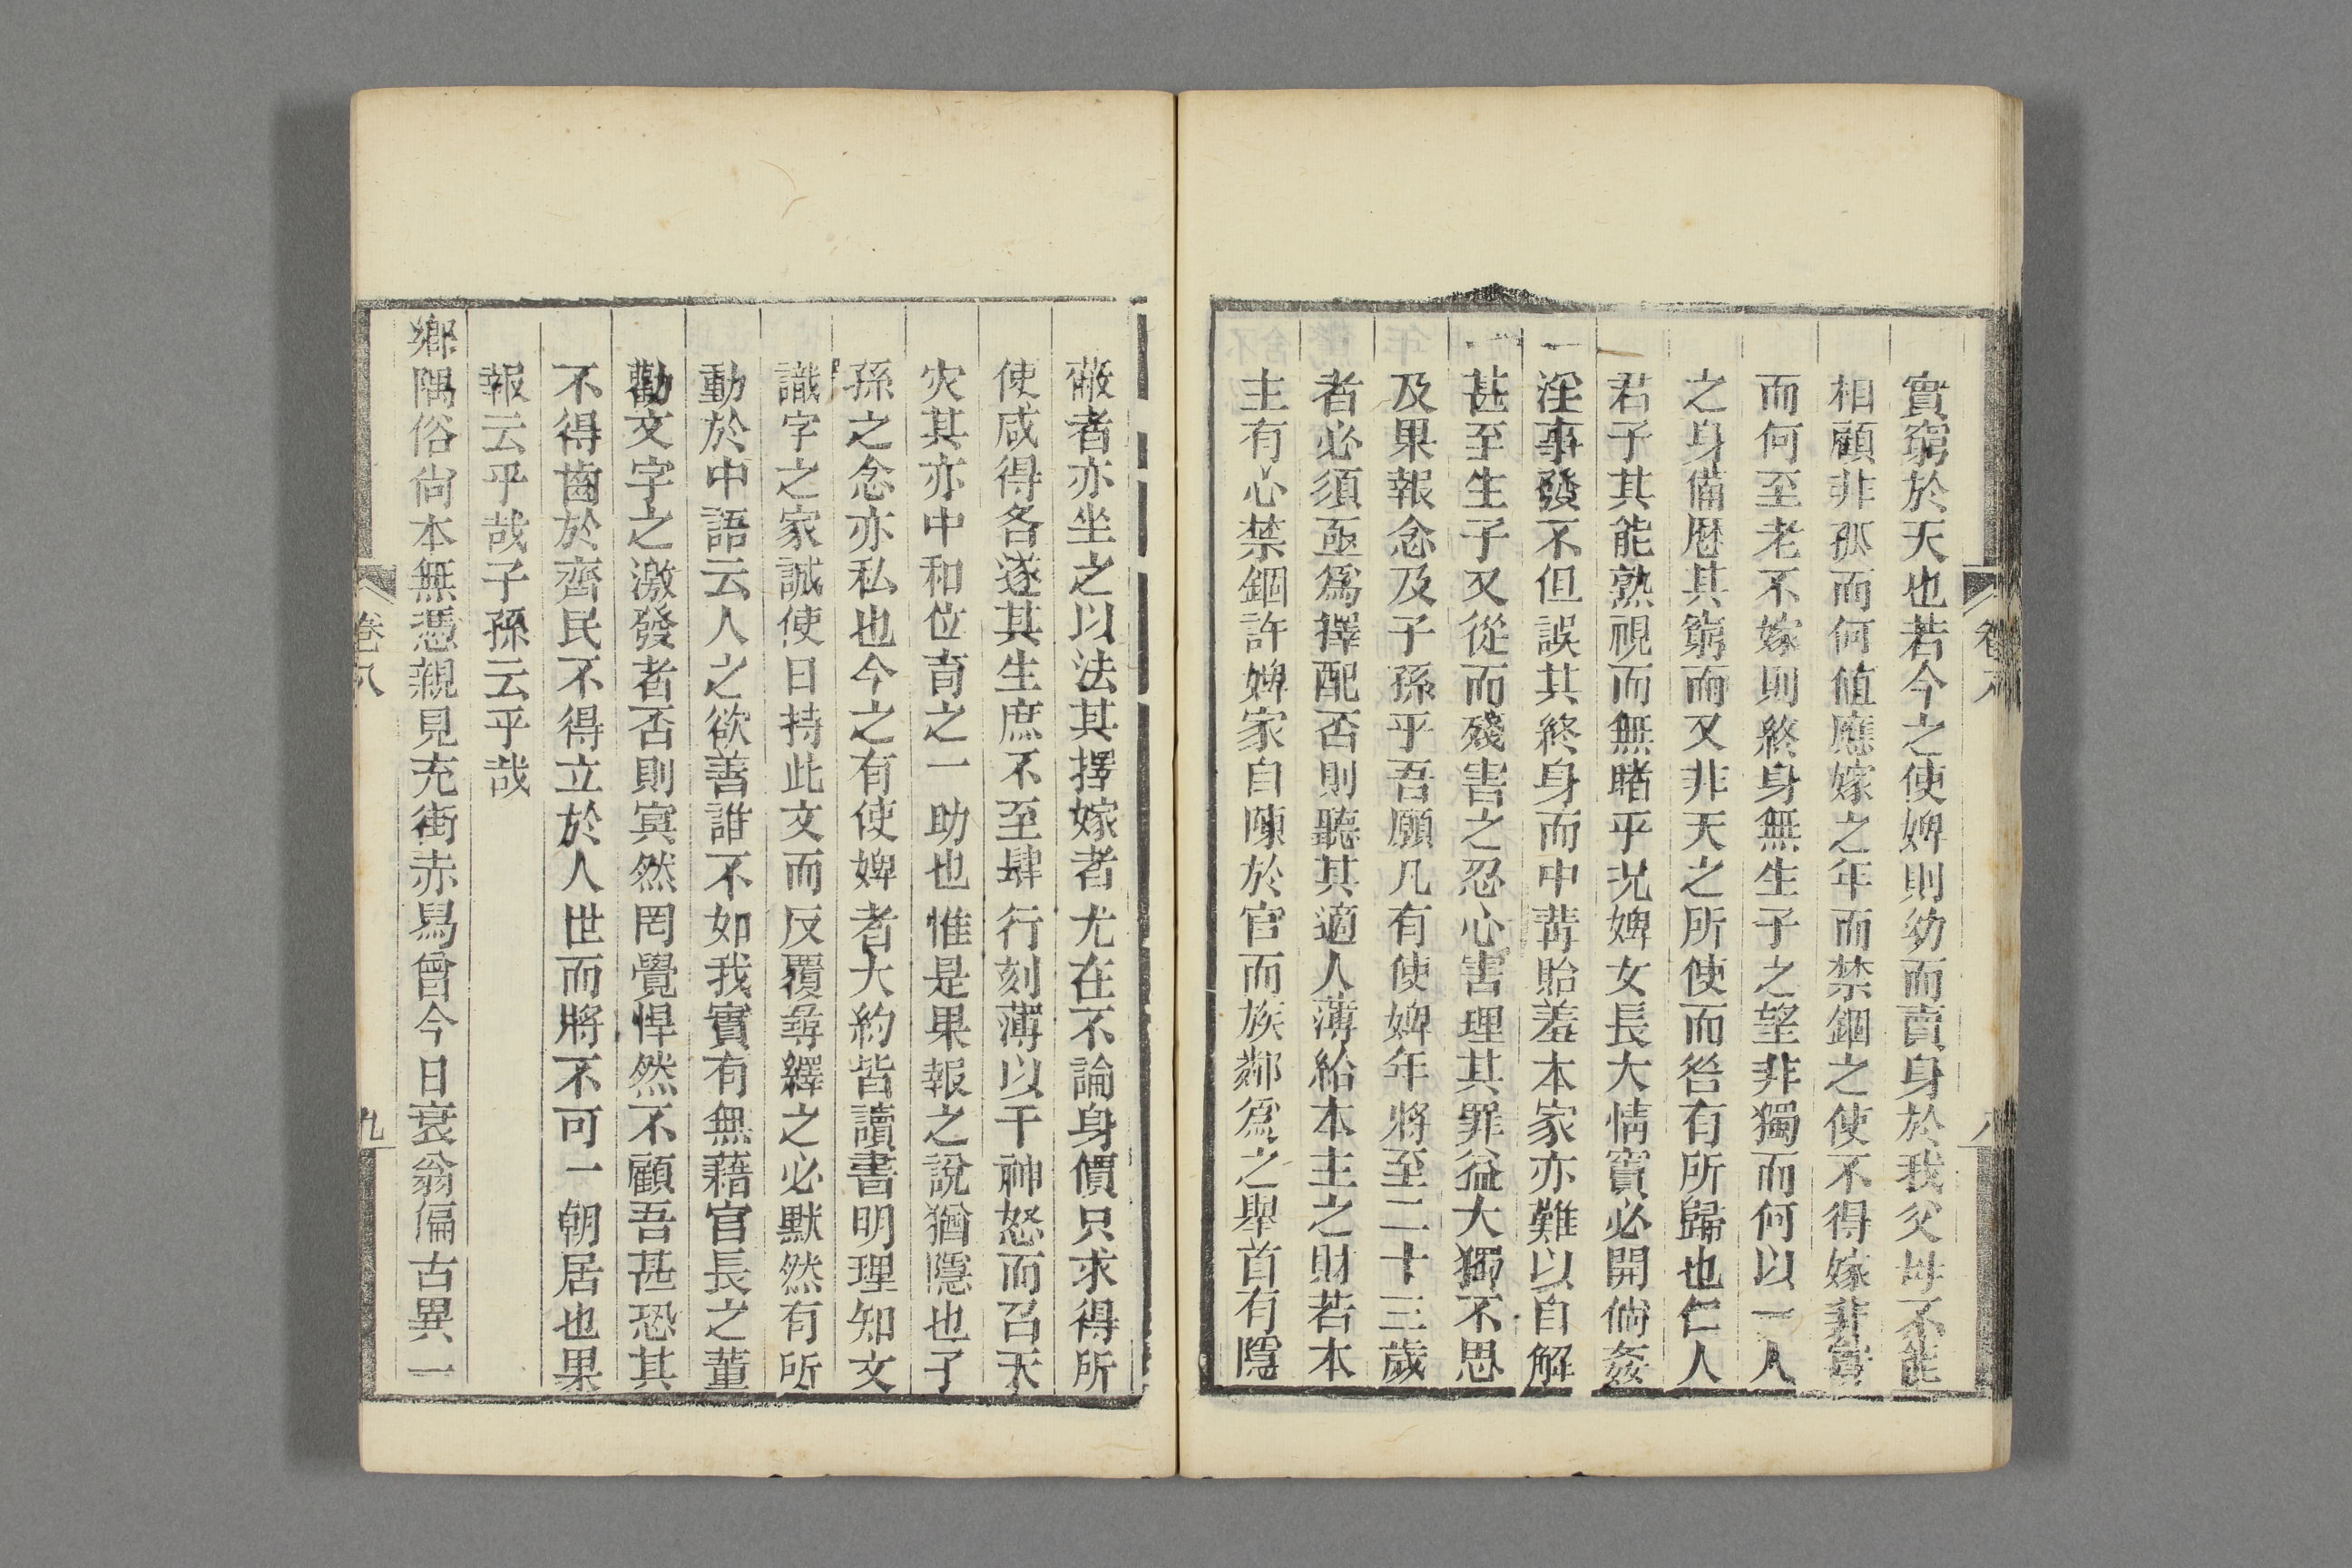 實窮於天也若今之使婢則幼而賣身於我父母不能
相顧非孤而何值應嫁之年而禁錮之使不得嫁非寡
而何至老不嫁則終身無生子之望非獨而何以一人
之身備歷其窮而又非天之所使而咎有所歸也仁人
君子其能熟視而無睹乎况婢女長大情竇必開倘姦
淫事發不但誤其終身而中冓貽羞本家亦難以自解
甚至生子又從而殘害之忍心害理其罪益大獨不思
及果報念及子孫乎吾願凡有使婢年將至二十三歲
者必須亟爲擇配否則聽其適人薄給本主之財若本
主有心禁錮許婢家自陳於官而族鄰爲之舉首有隱
蔽者亦坐之以法其擇嫁者尤在不論身價只求得所
使咸得各遂其生庶不至肆行刻薄以干神怒而召天
灾其亦中和位育之一助也惟是果報之說猶隱也子
孫之念亦私也今之有使婢者大約皆讀書明理知文
識字之家誠使日持此文而反覆尋繹之必默然有所
動於中語云人之欲善誰不如我實有無藉官長之董
勸文字之激發者否則寞然罔覺悍然不顧吾甚恐其
不得齒於齊民不得立於人世而將不可一朝居也果
報云乎哉子孫云乎哉
鄉隅俗尙本無憑親見充街赤舄曾今日衰翁偏古異一
卷八
九